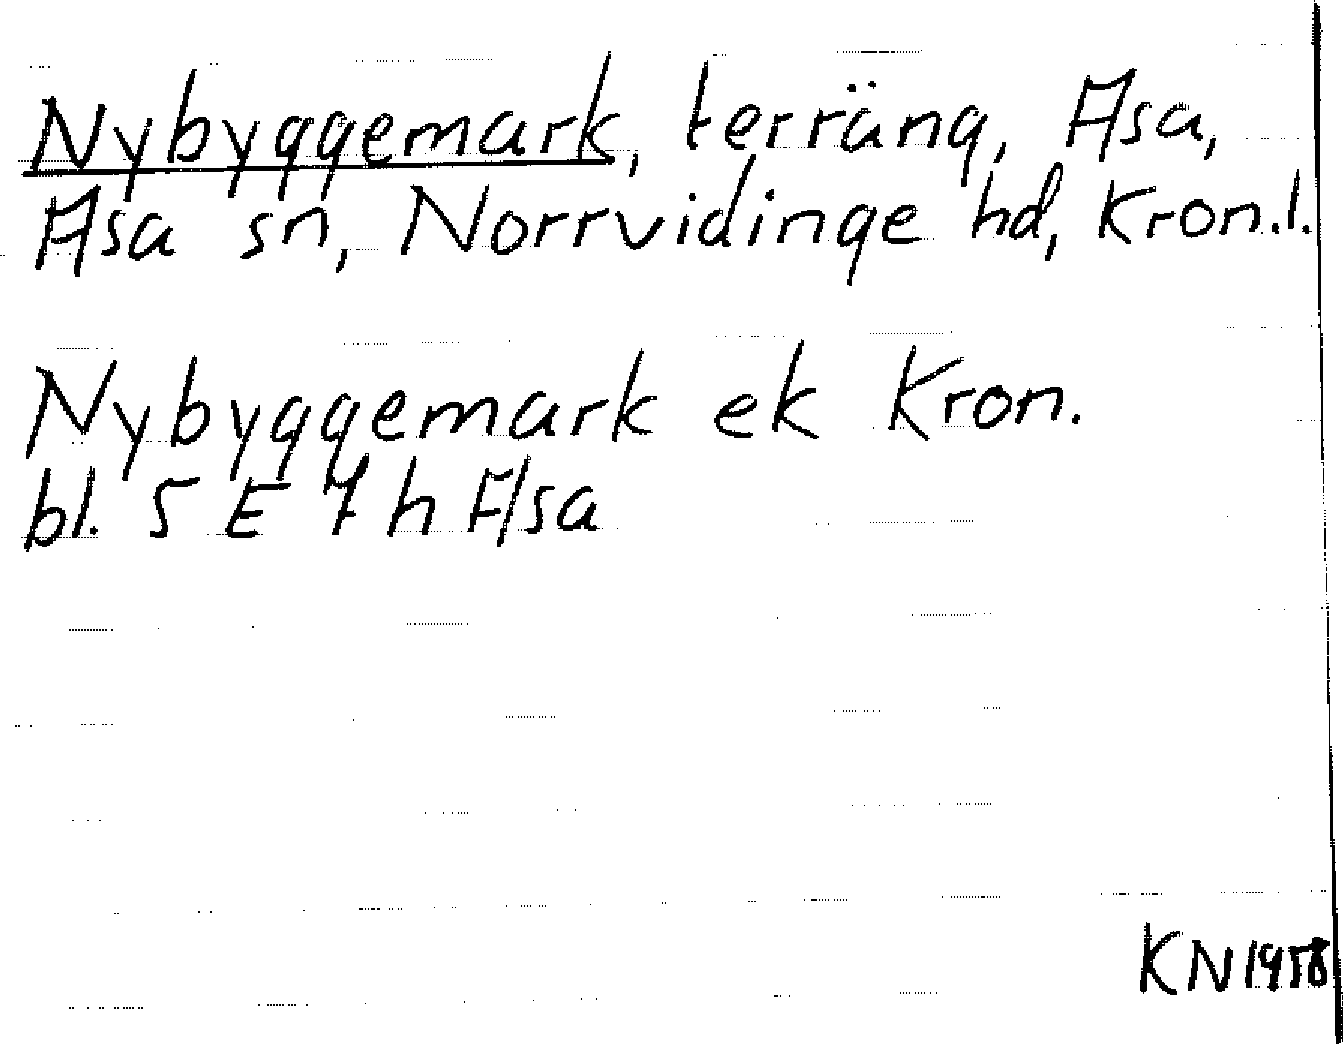 Nybyggemark, terräng, Asa,
Asa sn, Norrvidinge hd, Kron.l.
Nybyggemark ek Kron.
bl. 5 E 7 h Asa
KN 1958